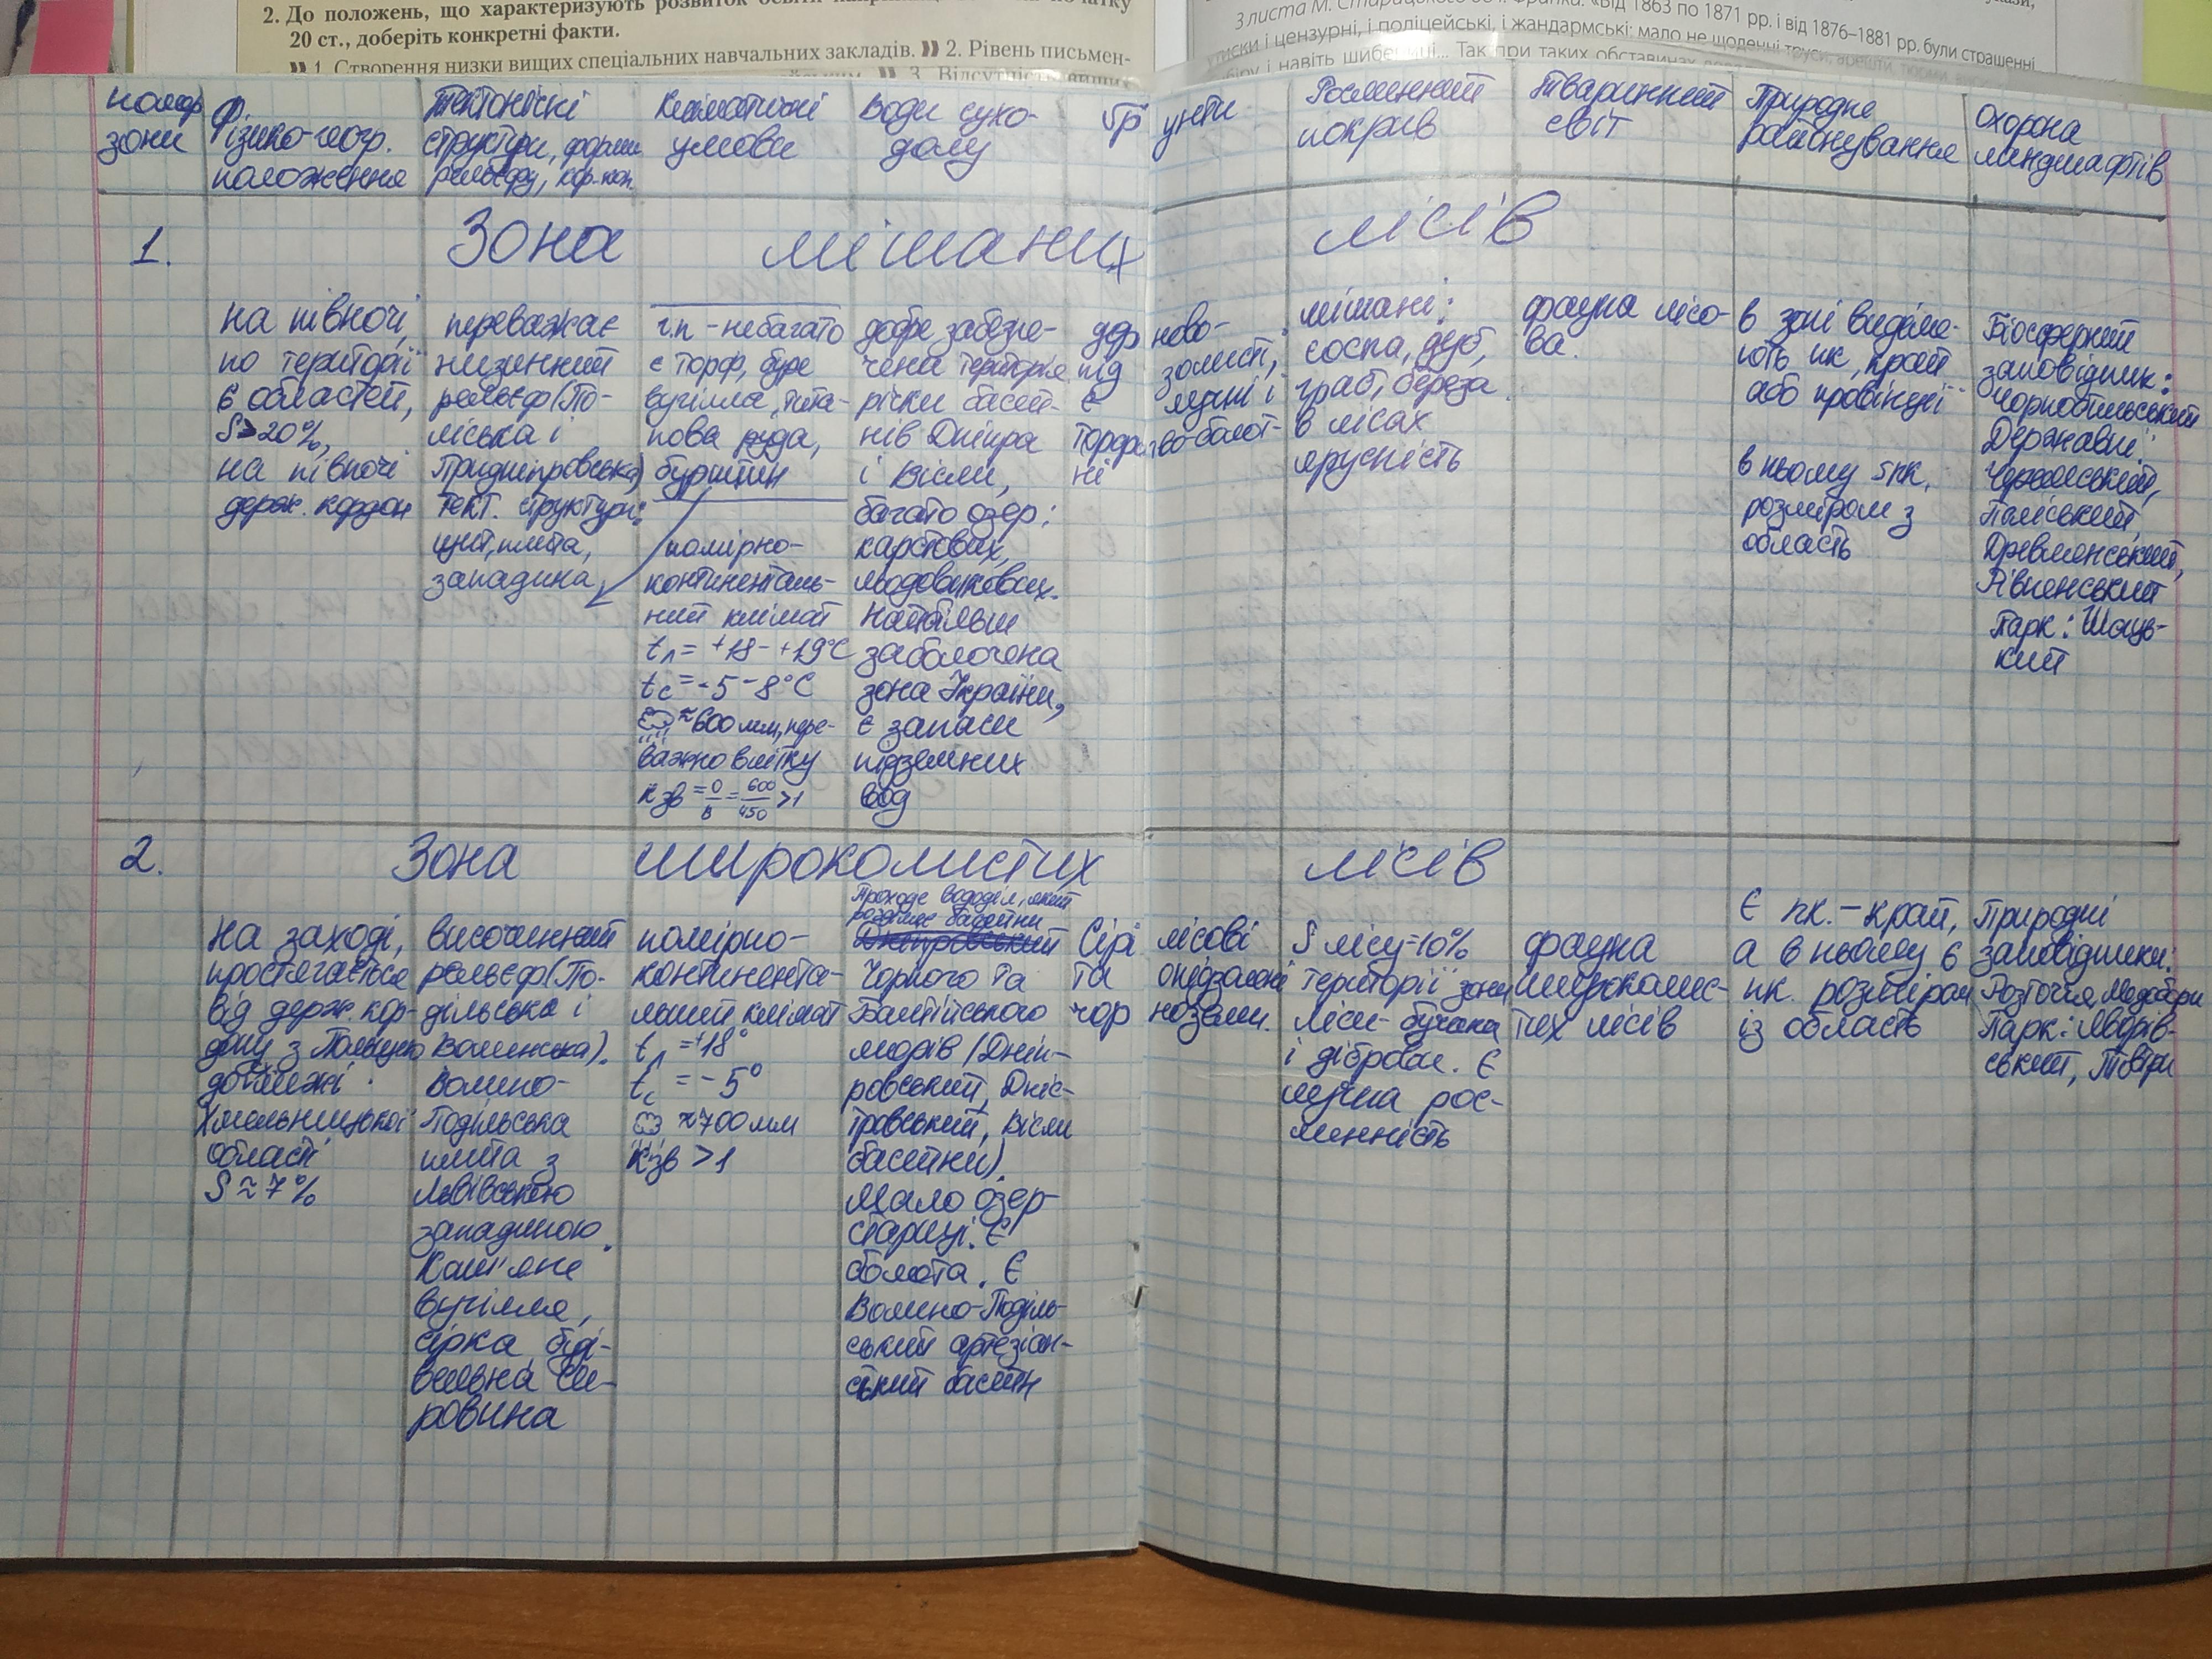 2. До положень, що характеризують розвиток
20 ст., доберіть конкретні факти.
1. Створення низки вищих спеціальних навчальних закладів. 2. Рівень письмен-
3. Відсутність вищих
З листа М. Старицького до І. Франка. «Від 1863 по 1871 рр. і від 1876–1881 рр. були страшенні
утиски і цензурні, і поліцейські, і жандармські: мало не щоденні труси, арешти, тюрми,
і навіть шибениці... Так при таких обставинах
номер зони
Фізико-геогр. положення
Тектонічні структури, форми рельєфу, кор. коп.
Кліматичні умови
Води сухо-
долу
Ґрунти
Рослинний покрив
Тваринний світ
Природне районування
Охорона ландшафтів
1. Зона мішаних лісів
на півночі,
по території
6 областей,
S>20%,
на півночі
держ. кордон
переважає
низинний
рельєф (По-
ліська і
Придніпровська)
тект. структури:
щит, плита,
западина,
г.п - небагато
є торф, буре
вугілля, тита-
нова руда,
бурштин
помірно-
континенталь-
ний клімат
tл = +18 - +19°C
tс = -5 -8°C
≈600 мм, пере-
важно влітку
Кзв = О/В = 600/450 >1
добре забезпе-
чена територія
річки басей-
нів Дніпра
і Вісли,
багато озер:
карстових,
льодовикових.
Найбільш
заболочена
зона України,
є запаси
підземних
вод
дерново-
підзолисті,
є лучні і
торфово-болот-
ні
мішані:
сосна, дуб,
граб, береза
в лісах
ярусність
фауна лісо-
ва.
в зоні виділя-
ють пк, край
або провінції
в ньому 5пк,
розміром з
область
Біосферний
заповідник:
Чорнобильський
Державні:
Черемський,
Поліський,
Древлянський,
Рівненський
Парк: Шаць-
кий
2. Зона широколистих лісів
На заході,
простягається
від держ. кор-
дону з Польщею
до межі
Хмельницької
області
S ≈ 7%
височинний
рельєф (По-
дільська і
Волинська).
Волино-
Подільська
плита з
Львівською
западиною.
Кам'яне
вугілля,
сірка буді-
вельна си-
ровина
помірно-
континента-
льний клімат
tл = +18°
tс = -5°
≈700 мм
Кзв >1
Проходе вододіл, який
розділяє басейни
Дніпровський
Чорного та
Балтійського
морів (Дніп-
ровський, Дніс-
тровський, Вісли
басейни).
Мало озер-
стариці. Є
болота. Є
Волино-Поділь-
ський артезіан-
ський басейн
Сірі лісові
та опідзолені
чорноземи.
S лісу=10%
території зони
ліси- бучина
і діброви. Є
лучна рос-
линність
фауна
широколис-
тих лісів
Є пк. - край,
а в ньому 6
пк. розміром
із область
Природні
заповідники:
Розточчя, Медобори
Парк: Яворів-
ський, Товтри